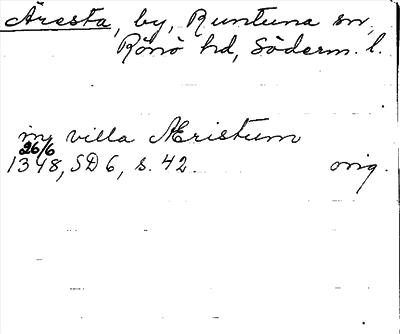 Äresta, by, Runtuna sn,
Rönö hd, Söderm. l.
in villa Æristum
26/6
1348, SD 6, s. 42 orig.